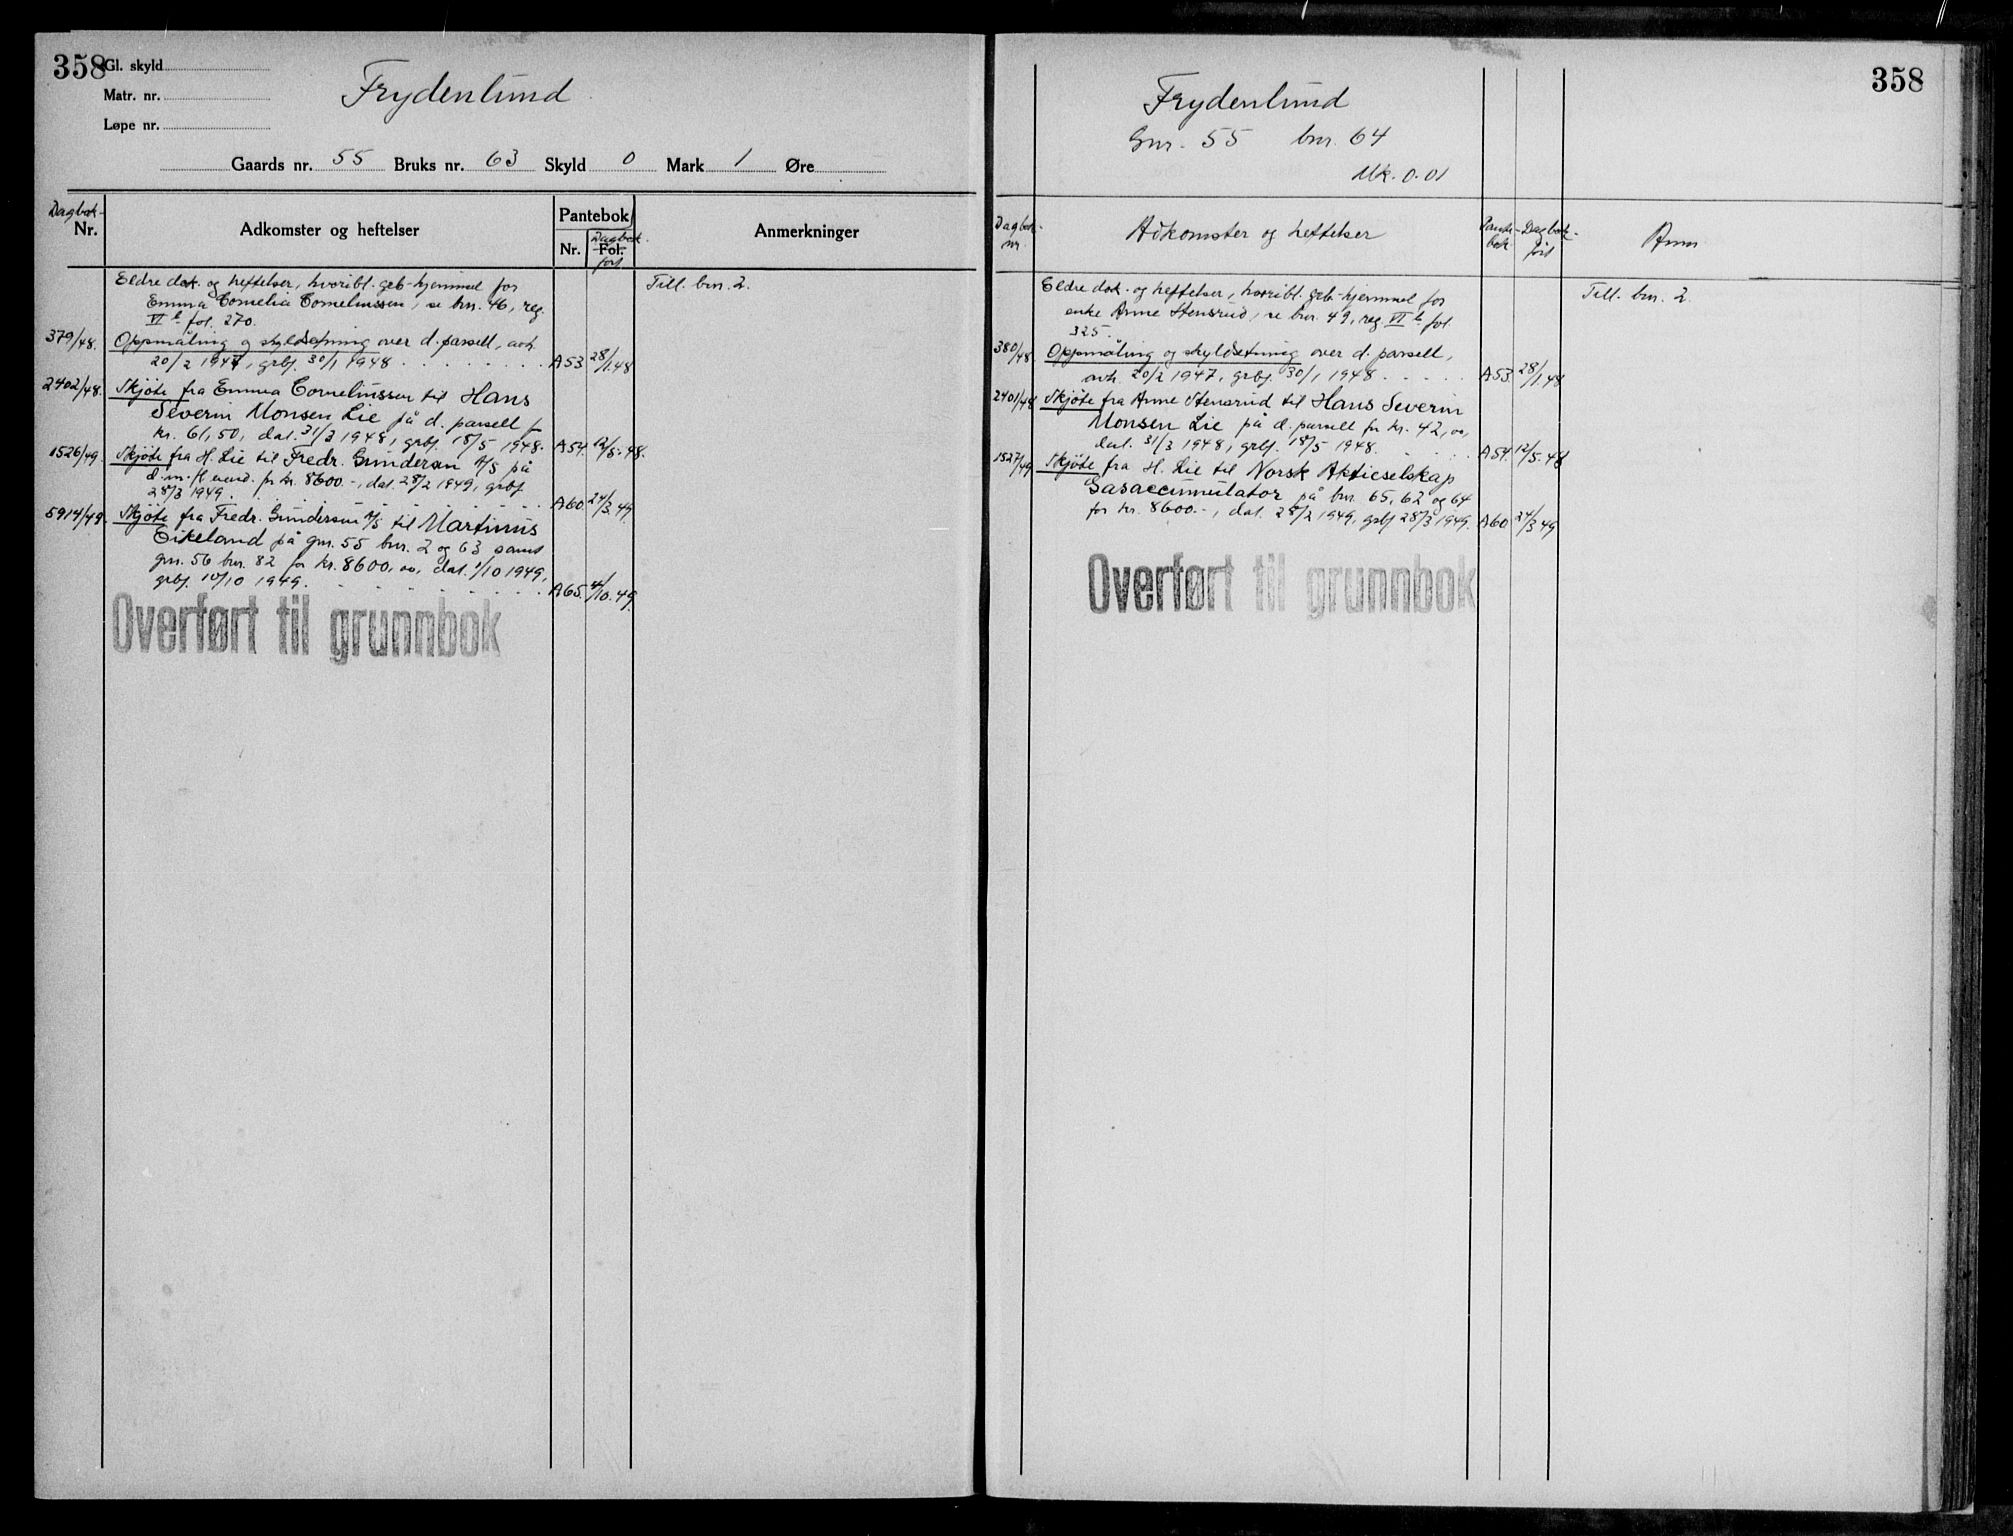 358 Gl. skyld
Matr. nr.
Løpe nr.
Frydenlund
Gaards nr. 55 Bruks nr. 63 Skyld 0 Mark 1 Øre
Dagbok-
Nr.
Adkomster og heftelser
Pantebok
Nr.
Dagbok-
Fol.
ført
Anmerkninger
Eldre dok. og heftelser, hvoribl. grb-hjemmel for
Emma Cornelia Cornelinssen, se bnr. 46, reg.
VI b fol. 270.
Till. bnr. 2.
379/48. Oppmåling og skyldsetning over d. parsell, avh.
20/2 1947, grbf. 30/1 1948 A53 28/1.48
2402/48. Skjøte fra Emma Cornelinssen til Hans
Severin Monsen Lie på d. parsell f
kr. 61,50, dat. 31/3 1948, grbf. 18/5 1948. A54. 12/5-48.
1526/49. Skjøte fra H. Lie til Fredr. Gundersen A/S på
d. m. fl. eiend. for kr. 8600.-, dat. 28/2 1949, grbf
28/3 1949. A60. 24/3.49.
5914/49. Skjøte fra Fredr. Gundersen A/S til Martinus
Eikeland på gnr. 55 bnr. 2 og 63 samt
gnr. 56 bnr. 82 for kr. 8600,oo, dat. 1/10 1949,
grbf. 10/10 1949. A65. 4/10.49.
Overført til grunnbok
358
Frydenlund
Gnr. 55 bnr. 64
Mk. 0.01
Dagbok-
nr
Adkomster og heftelser
Pante-
bok
Dagbok-
ført
Anm
Eldre dok. og heftelser, hvoribl. grb-hjemmel for
enke Anne Stensrud, se bnr. 49, reg VI b fol
325.
Till. bnr. 2.
380/48 Oppmåling og skyldsetning over d. parsell,
avh. 20/2 1947, grbf. 30/1 1948 A53. 28/1.48
2401/48 Skjøte fra Anne Stensrud til Hans Severin
Monsen Lie på d. parsell for kr. 42,oo,
dat. 31/3 1948, grbf. 18/5 1948. A54. 12/5.48
1527/49 Skjøte fra H. Lie til Norsk Aktieselskap
Gasaccumulator på bnr. 65, 62 og 64
for kr. 8600.-, dat. 28/2 1949, grbf 28/3 1949. A60 24/3 49
Overført til grunnbok